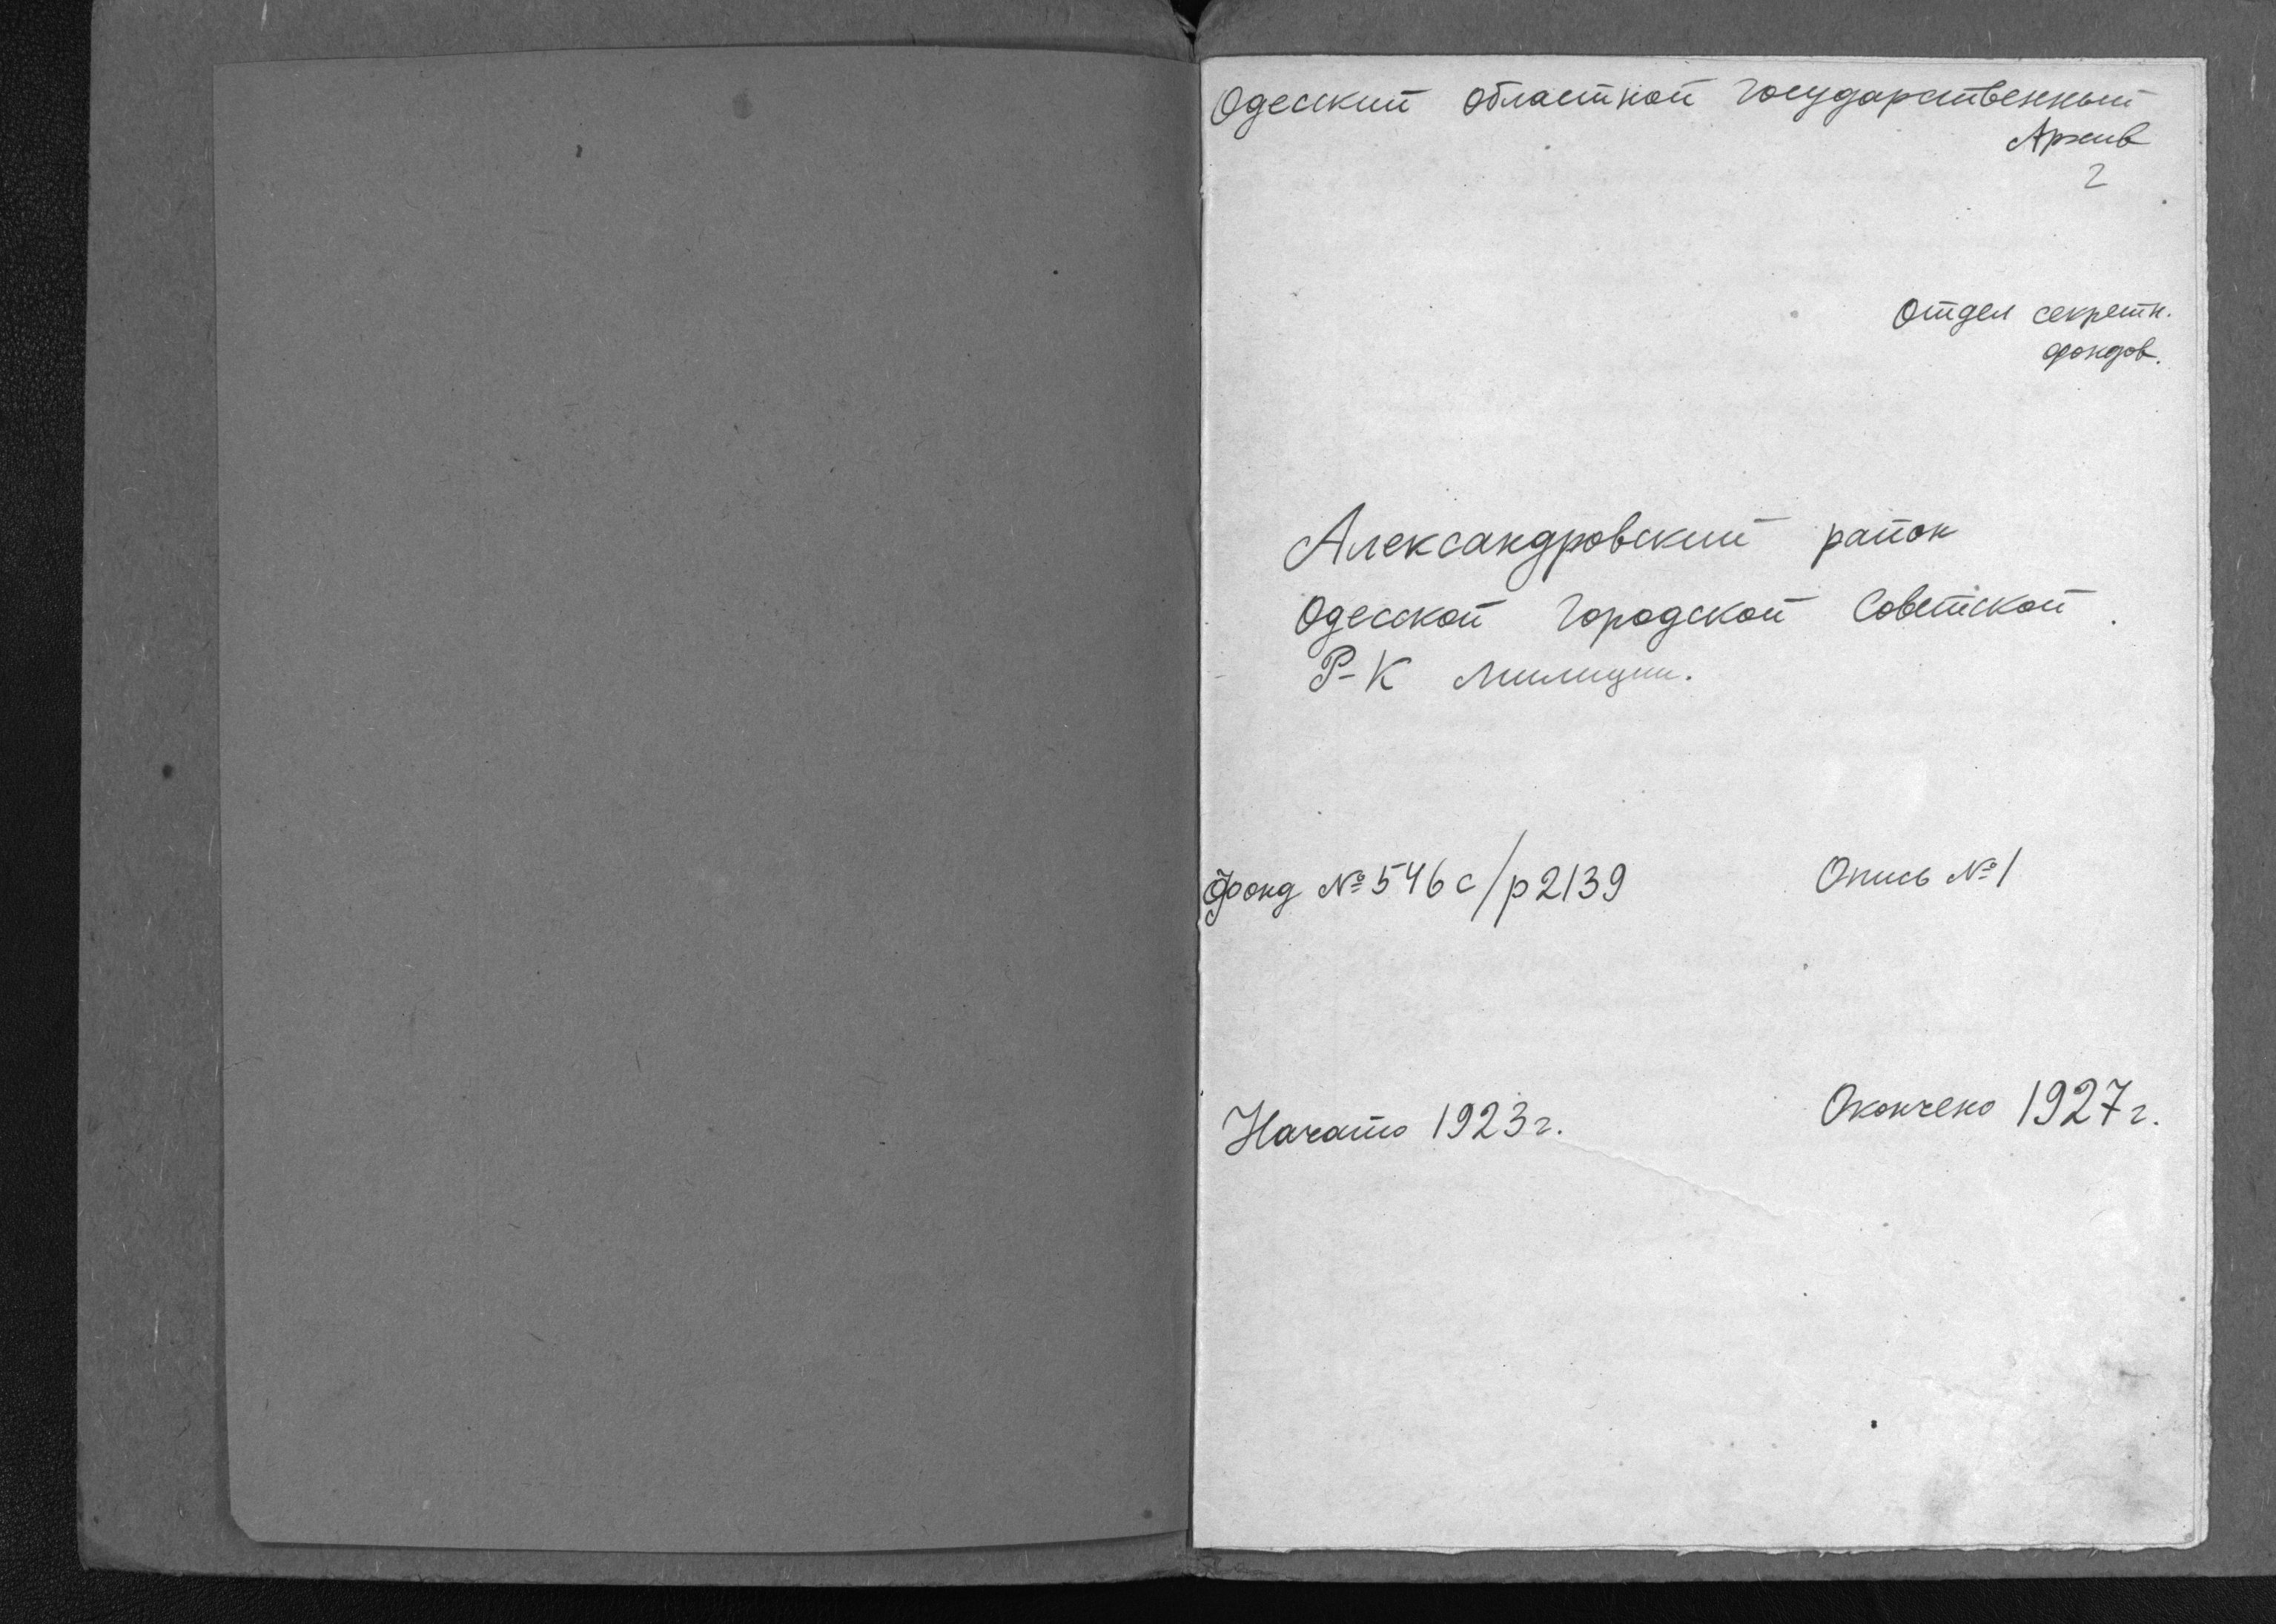 Одесский областной государственный
Архив
2
Отдел секретн.
фондов.
Александровский район
Одесской городской Советской
Р-К милиции.
Фонд № 546 с/р 2139
Опись № 1
Начато 1923 г.
Окончено 1927 г.